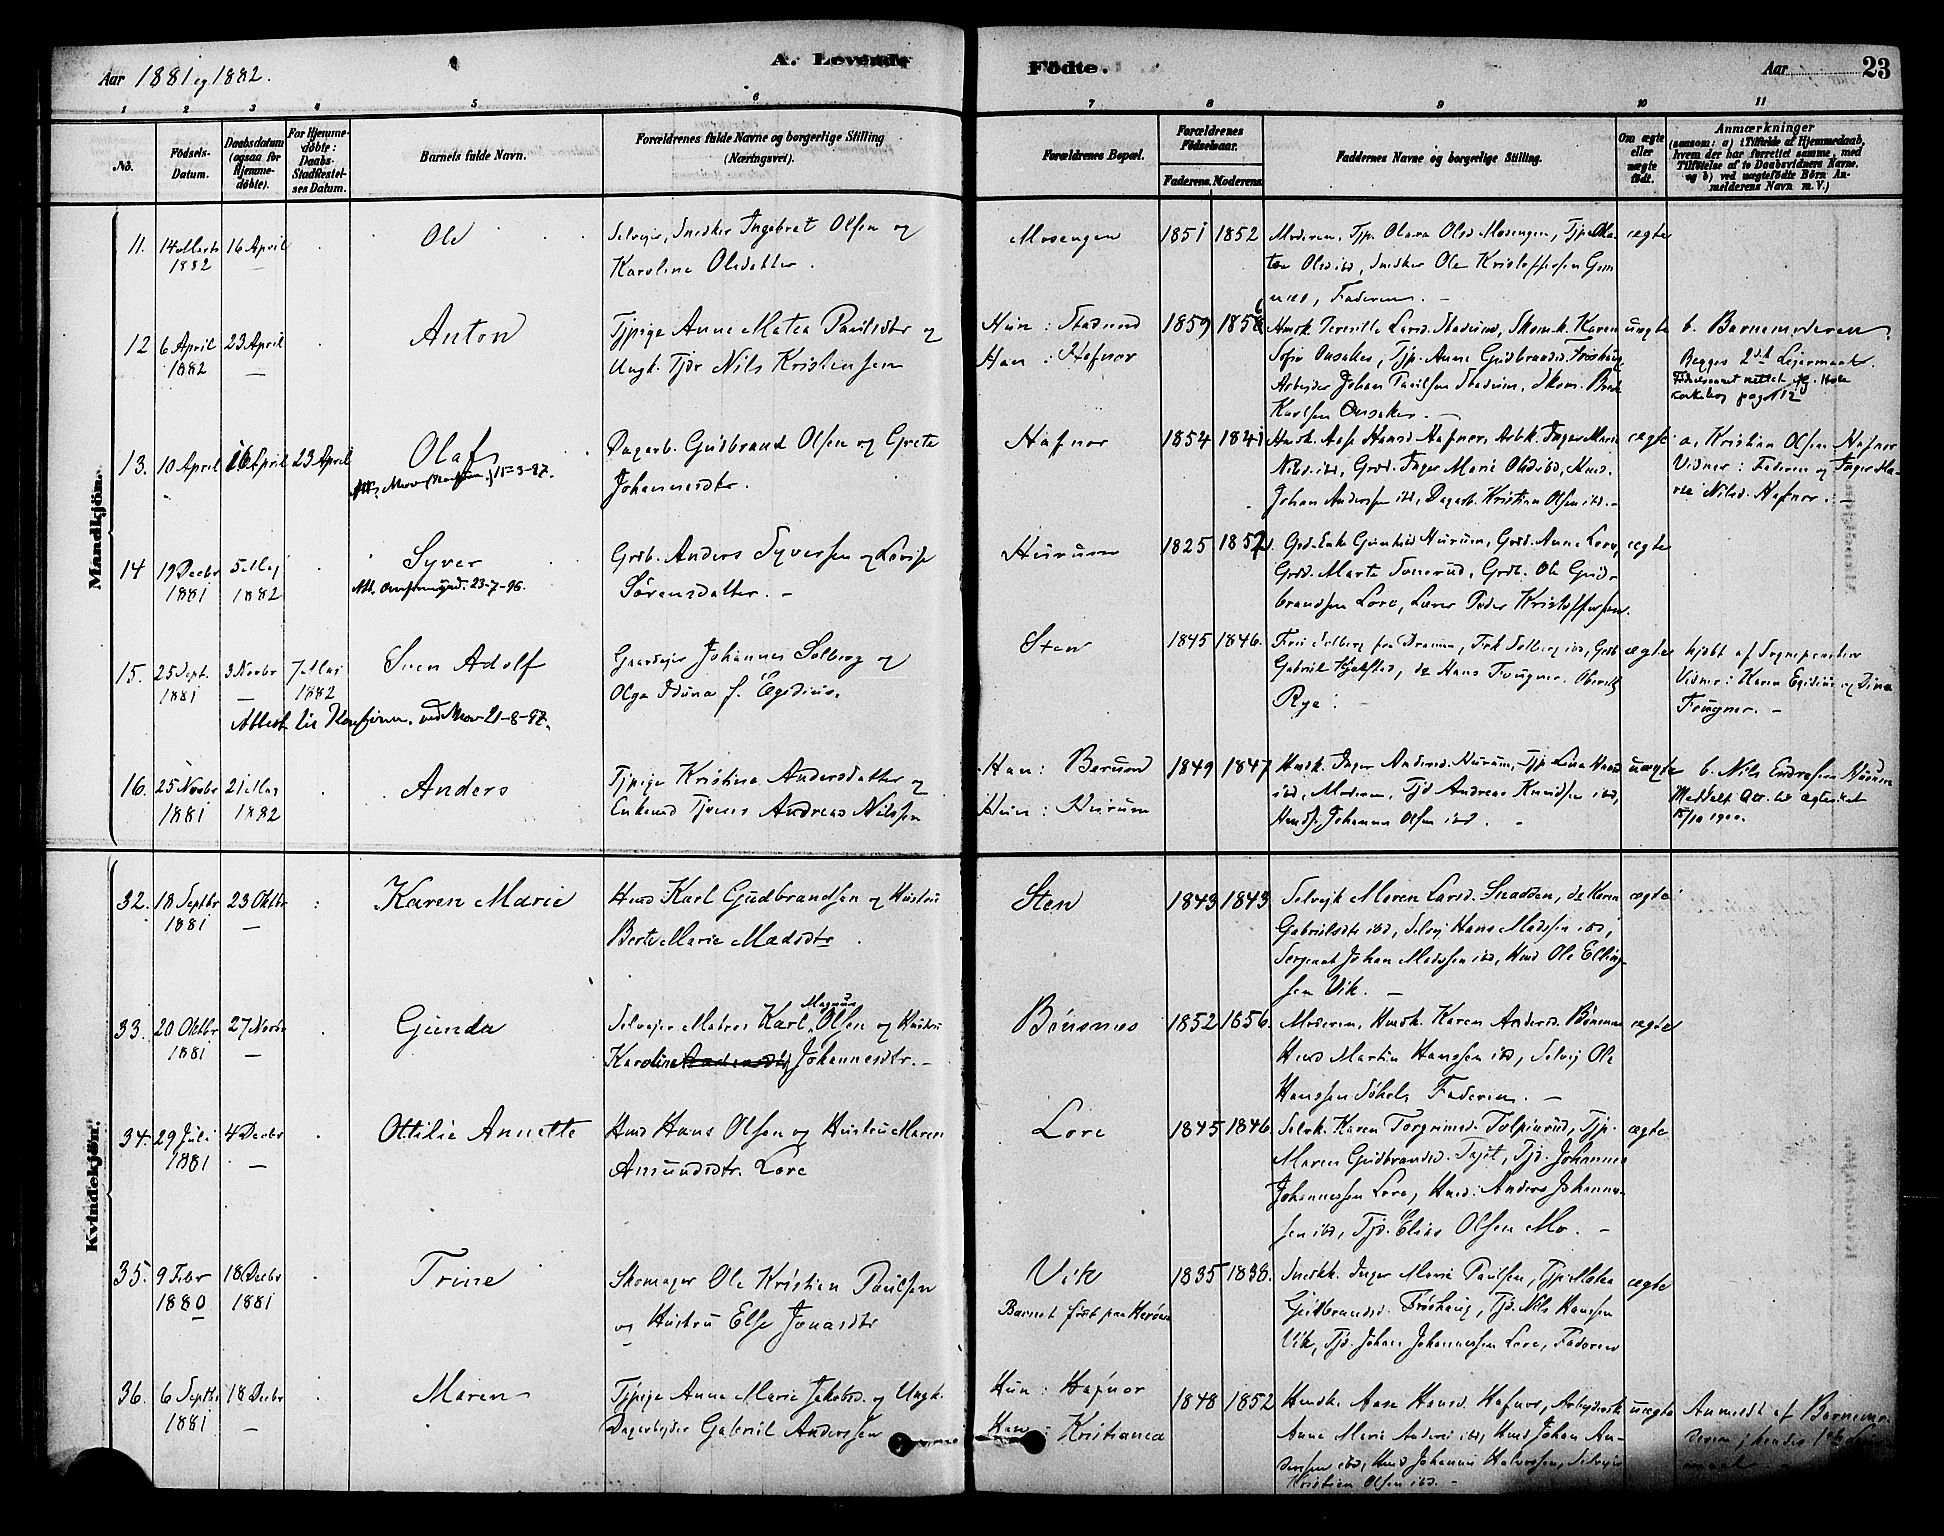 Aar 1881 og 1882.
A. Levende
Födte.
Aar
23
1 2 3 4 5 6 7 8 9 10 11
No.
Födsels-
Datum.
Daabsdatum
(ogsaa for
Hjemme-
döbte).
For Hjemme-
döbte:
Daabs-
Stadfæstel-
ses Datum.
Barnets fulde Navn.
Forældrenes fulde Navne og borgerlige Stilling
(Næringsvei).
Forældrenes Bopæl.
Forældrenes
Födselsaar.
Faderens. Moderens.
Faddernes Navne og borgerlige Stilling.
Om ægte
eller
uægte
födt.
Anmærkninger
(saasom: a) i Tilfælde af Hjemmedaab,
hvem der har forrettet samme, med
Tilföielse af to Daabsvidners Navne,
og b) ved uægtefödte Börn An-
melderens Navn m. V.)
Mandkjön.
11. 14 Marts 1882
16 April
Ole
Selveier, Snedker Ingebret Olsen og
Karoline Olsdatter.
Mosengen
1851 1852
Moderen, Tjp. Olava Olsd Mosengen,
Snedker Ole Kristoffersen
Faderen. –
ægte
12 6 April 1882
23 April
Anton
Tjpige Anne Matea Paulsdtr og
Ungk. Tjdr Nils Kristensen
Hun: Stadum
Han: Hafnor
1859 1856
Karen
Tjp. Anne Gudbrandsd. Fröshaug
Arbejder Johan Paulsen Stadum,
Karlsen Onsaker. –
uægte
b. Barnemoderen
Begges 2det Leiermaal.
pag 112
13. 10 April
16 April
23 April
Olaf
15-3-97.
Dagarb. Gudbrand Olsen og Grete
Johannesdtr.
Hafnor
1854 1841
Husk. Aase Hansd Hafnor, Arbk. Inger Marie
Nilsd ibd, Grd. Inger Marie Olsd ibd,
Johan Anderssen ibd, Dagarb. Kristian Olsen ibd. –
ægte
a. Kristian Olsen Hafnor
Vidner: Faderen og Inger Ma-
rie Nilsd. Hafnor. –
14 19 Decbr 1881
5 Maj 1882
Syver
23-7-96.
Grdb. Anders Syversen og Lovise
Sörensdatter. –
Hurum
1825 1857
Hurum, Grd. Anne Lore,
Grd. Marte Tonerud, Grdb. Ole Gud-
brandsen Lore, Lærer Peder Kristoffersen.
ægte
15. 25 Sept. 1881
3 Novbr
7 Mai 1882
Sven Adolf
21-8-97.
Gaardejer Johannes Solberg og
Olga Iduna f. Egidius.
Sten
1845 1846.
Solberg fra Drammen, Frk Solberg ibd, Grdb
Gabriel Gjelstad, do Hans Fougner, Oberstl
Rye.
ægte
hjdbt af Sognepresten
Vidner: Karen Egidius og Dina
Fougner. –
16. 25 Novbr 1881
21 Mai 1882
Anders
Tjpige Kristine Andersdatter og
Enkemd Tjener Andreas Nilssen
Han: Berum
Hun: Hurum
1849 1847
Husk. Inger Andersd. Hurum, Tjp. Lina
ibd, Moderen, Tjd Andreas Knudsen ibd,
Johannes Olsen ibd. –
uægte
b. Nils Endresen Hurum
Meddelt Att. til Ægteskab
15/10 1900.
Kvindekjön.
32. 18 Septbr 1881
23 Oktbr
Karen Marie
Husmd Karl Gudbrandsen og Hustru
Berte Marie Madsdtr.
Sten
1843 1843
Selvejk Maren Larsd. Snadden, do Karen
Gabrielsdtr ibd, Selvej Hans Madssen ibd,
Sergeant Johan Madssen ibd, Husmd Ole Elling-
sen Vik. –
ægte
33. 20 Oktbr 1881
27 Novbr
Gunda
Selvejer Matros Karl Magnus Olsen og Hustru
Karoline Johannesdtr. –
Bönsnes
1852 1856.
Moderen, Husmk. Karen Andersd. Bönsnes
Husmd Martin Hanssen ibd, Selvej Ole
Hanssen Söhol, Faderen. –
ægte
34. 29 Juli 1881
4 Decbr
Ottilie Annette
Husmd Hans Olsen og Hustru Maren
Amundsdtr. Lore
Lore
1845 1846
Selvk. Karen Torgrimsd. Tolpinrud, Tjp.
Maren Gudbrandsd. Fajit, Tjd. Johannes
Johannessen Lore, Husmd. Anders Johannes-
sen ibd, Tjd. Elias Olsen Mo. –
ægte
35. 9 Febr 1880
18 Decbr 1881
Trine
Skomager Ole Kristian Paulsen
og Hustru Else Jonasdtr
Vik
Barnet födt paa Heröen
1835 1838.
Snedkk. Inger Marie Paulsen, Tjp. Matea
Gudbrandsd. Fröshaug, Tjd. Nils Hanssen
Vik, Tjd. Johan Johannessen Lore, Faderen
ægte
36. 6 Septbr 1881
18 Decbr
Maren
Tjpige Anne Marie Jakobsd. og Ungk.
Dagarbejder Gabriel Anderssen
Hun: Hafnor
Han: Kristiania
1848 1852
Husmk. Aase Hansd. Hafnor, Arbejdersk
Anne Marie Andersd ibd, Husmd Johan An-
derssen ibd, Husmd Johannes Halvorssen, Selvejer
Kristian Olsen ibd. –
uægte
Anmeldt af Barnemo-
deren, hendes 1ste